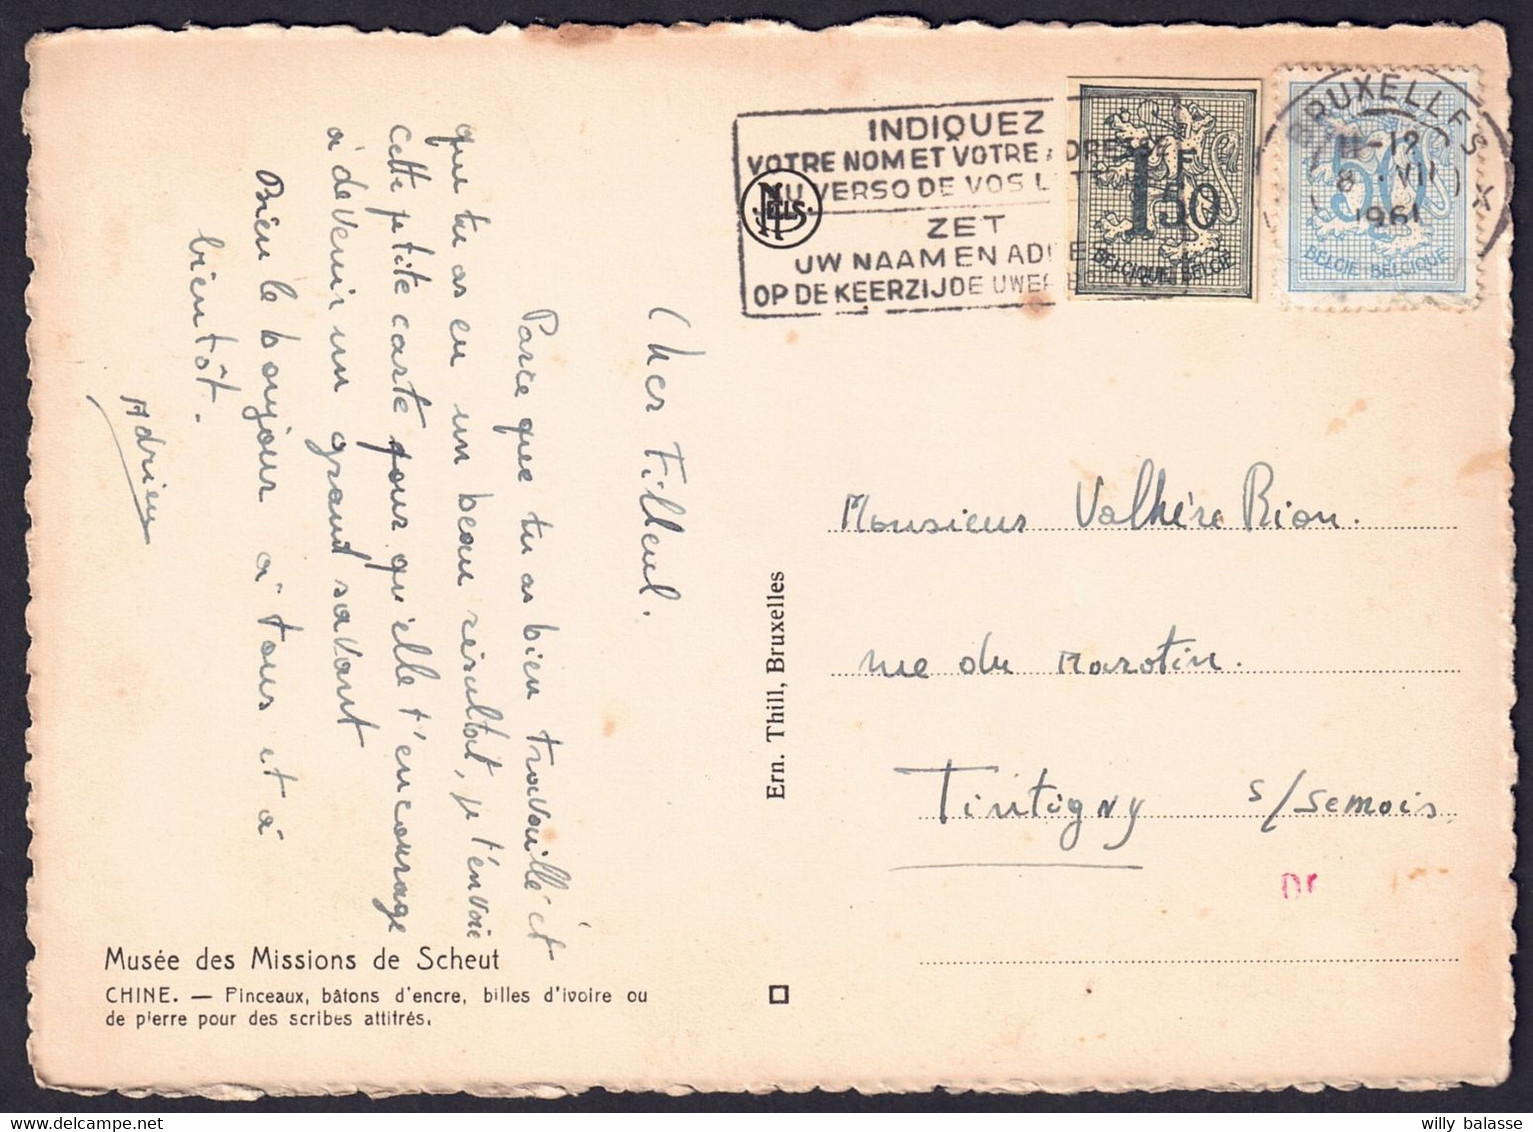 Cher Filleul.
Parce que tu as bien travaillé et
que tu as eu un beau résultat, je t'envoie
cette petite carte pour qu'elle t'encourage
à devenir un grand savant
Bien le bonjour à tous et à
bientôt.
Adrien
Musée des Missions de Scheut
CHINE. — Pinceaux, bâtons d'encre, billes d'ivoire ou
de pierre pour des scribes attitrés.
Ern. Thill, Bruxelles
NELS
INDIQUEZ
VOTRE NOM ET VOTRE ADRESSE
AU VERSO DE VOS
ZET
UW NAAM EN
OP DE KEERZIJDE UWER
1F50
BELGIQUE-BELGIE
50
BELGIE-BELGIQUE
BRUXELLES X
11-12
8 VII
1961
Monsieur Valhère Rion.
rue du Marotin.
Tintigny s/Semois.
willy balasse